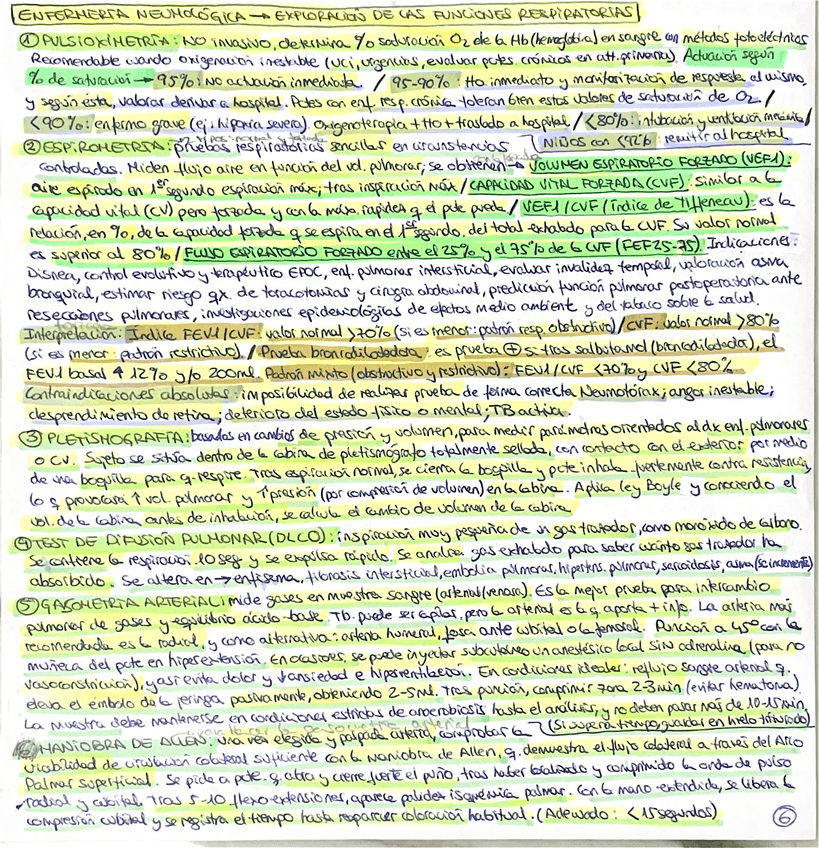 ENFERMERÍA NEUMOLÓGICA → EXPLORACIÓN DE LAS FUNCIONES RESPIRATORIAS
① PULSIOXIMETRÍA: No invasivo, determina % saturación O2 de la Hb (hemoglobina) en sangre con métodos fotoeléctricos
Recomendable cuando oxigenación inestable (UCI, urgencias, evaluar pctes. crónicos en att. primaria). Actuación según
% de saturación → 95%: No actuación inmediata / 95-90%: tto. inmediato y monitorización de respuesta al mismo,
y según ésta, valorar derivar a hospital. Pctes con enf. resp. crónica toleran bien estos valores de saturación de O2 /
<90%: enfermo grave (ej; hipoxia severa). Oxigenoterapia + tto + traslado a hospital / <80%: intubación y ventilación mecánica /
② ESPIROMETRÍA: pruebas respiratorias sencillas en circunstancias NIÑOS con <92%: remitir al hospital
controladas. Miden flujo aire en función del vol. pulmonar; se obtienen → VOLUMEN ESPIRATORIO FORZADO (VEF1):
aire espirado en 1er segundo espiración máx; tras inspiración máx / CAPACIDAD VITAL FORZADA (CVF): Similar a la
capacidad vital (CV) pero forzada y con la máx. rapidez q el pcte pueda / VEF1/CVF (índice de Tiffeneau): es la
relación, en %, de la capacidad forzada q se espira en el 1er segundo, del total exhalado para la CVF. Su valor normal
es superior al 80% / FLUJO ESPIRATORIO FORZADO entre el 25% y el 75% de la CVF (FEF25-75). Indicaciones:
Disnea, control evolutivo y terapéutico EPOC, enf. pulmonar intersticial, evaluar invalidez temporal, valoración asma
bronquial, estimar riesgo qx. de toracotomías y cirugía abdominal, predicción función pulmonar postoperatoria ante
resecciones pulmonares, investigaciones epidemiológicas de efectos medio ambiente y del tabaco sobre la salud.
Interpretación: Índice FEV1/CVF: valor normal >70% (si es menor: patrón resp. obstructivo) / CVF: valor normal >80%
(si es menor: patrón restrictivo). / Prueba broncodilatadora: es prueba ⊕ si tras salbutamol (broncodilatador), el
FEV1 basal ↑ 12% y/o 200ml. Patrón mixto (obstructivo y restrictivo): FEV1/CVF <70% y CVF <80%
Contraindicaciones absolutas: imposibilidad de realizar prueba de forma correcta Neumotórax; angor inestable;
desprendimiento de retina; deterioro del estado físico o mental; TB activa.
③ PLETISMOGRAFÍA: basados en cambios de presión y volumen, para medir parámetros orientados al dx enf. pulmonares
o CV. Sujeto se sitúa dentro de la cabina de pletismógrafo totalmente sellada, con contacto con el exterior por medio
de una boquilla para q respire. Tras espiración normal, se cierra la boquilla y pcte inhala fuertemente contra resistencia,
lo q provocará ↑ vol. pulmonar y ↑ presión (por compresión de volumen) en la cabina. Aplica ley Boyle y conociendo el
vol. de la cabina antes de inhalación, se calcula el cambio de volumen de la cabina
④ TEST DE DIFUSIÓN PULMONAR (DLCO): inspiración muy pequeña de un gas trazador, como monóxido de carbono.
Se contiene la respiración 10 seg y se expulsa rápido. Se analiza gas exhalado para saber cuánto gas trazador ha
absorbido. Se altera en → enfisema, fibrosis intersticial, embolia pulmonar, hipertens. pulmonar, sarcoidosis, asma (se incrementa)
⑤ GASOMETRÍA ARTERIAL: mide gases en muestra sangre (arterial/venosa). Es la mejor prueba para intercambio
pulmonar de gases y equilibrio ácido-base. Tb. puede ser capilar, pero la arterial es la q aporta + info. La arteria más
recomendada es la radial, y como alternativa: arteria humeral, fosa ante cubital o la femoral. Punción a 45º con la
muñeca del pcte en hiperextensión. En ocasiones, se puede inyectar subcutáneo un anestésico local sin adrenalina (para no
vasoconstricción), y así evita dolor y ansiedad e hiperventilación. En condiciones ideales: reflujo sangre arterial q
eleva el émbolo de la jeringa pasivamente, obteniendo 2-5ml. Tras punción, comprimir zona 2-3 min (evitar hematoma).
La muestra debe mantenerse en condiciones estrictas de anaerobiosis hasta el análisis, y no deben pasar más de 10-15 min,
(Si supera tiempo, guardar en hielo triturado)
⑥ MANIOBRA DE ALLEN: una vez elegida y palpada arteria, comprobar la
viabilidad de circulación colateral suficiente con la maniobra de Allen, q demuestra el flujo colateral a través del Arco
Palmar superficial. Se pide a pcte. q abra y cierre fuerte el puño, tras haber localizado y comprimido la onda de pulso
radial y cubital. Tras 5-10 flexo-extensiones, aparece palidez isquémica palmar. Con la mano extendida, se libera la
compresión cubital y se registra el tiempo hasta reaparecer coloración habitual. (Adecuado: <15 segundos)
⑥